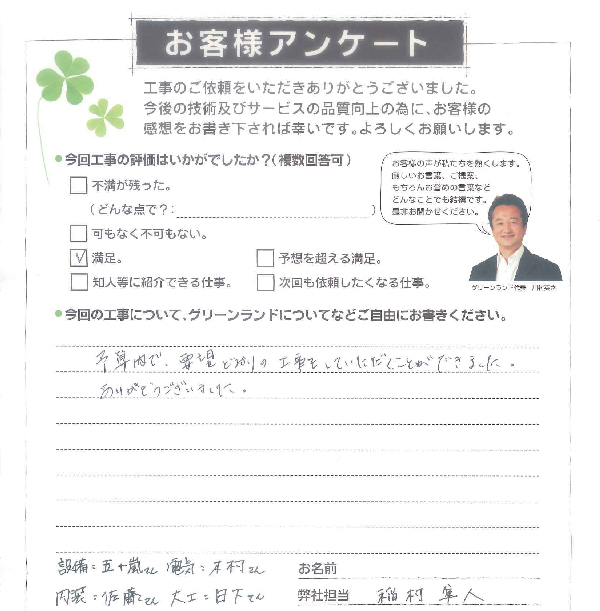 お客様アンケート
工事のご依頼をいただきありがとうございました。
今後の技術及びサービスの品質向上の為に、お客様の
感想をお書き下されば幸いです。よろしくお願いします。
●今回工事の評価はいかがでしたか？(複数回答可)
お客様の声が私たちを熱くします。
厳しいお言葉、ご提案、
もちろんお誉めの言葉など
どんなことでも結構です。
是非お聞かせください。
□不満が残った。
(どんな点で?: )
□可もなく不可もない。
☑満足。 □予想を超える満足。
□知人等に紹介できる仕事。 □次回も依頼したくなる仕事。
グリーンランド代表
●今回の工事について、グリーンランドについてなどご自由にお書きください。
予算内で、要望どおりの工事をしていただくことができました。
ありがとうございました。
設備:五十嵐さん 電気:木村さん お名前
内装:佐藤さん 大工:日下さん 弊社担当 稲村 隼人